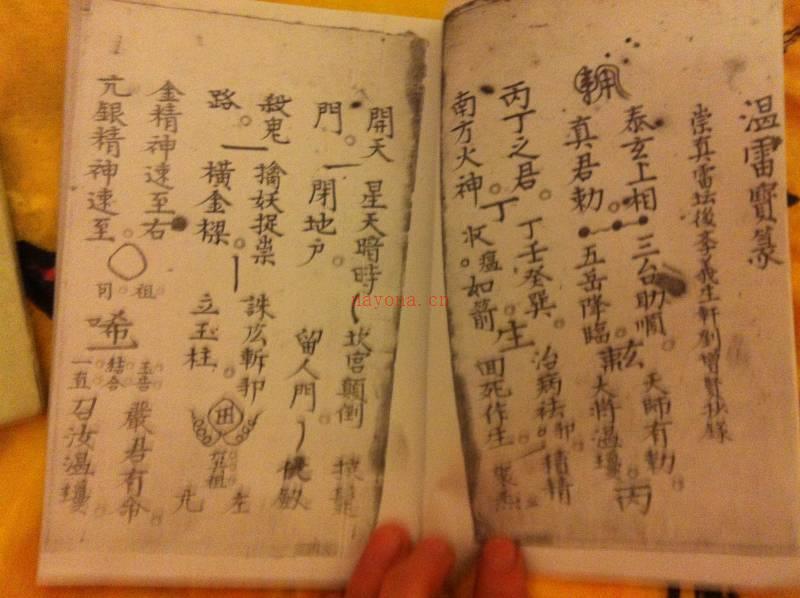 温雷寶篆
崇真雷坛後孝義生軒劉增賢抄錄
泰玄上相 三台助順 天師有勅
真君勅 五岳降臨 大將温瓊 丙
丙丁之君 丁壬癸巽 治病祛邪 精精
南方火神 丁 收瘟如箭 生 回死作生
開天 星天暗時 坎宫顛倒
門 閉地户 留人門
殺鬼 擒妖捉祟 誅妖斬邪
路 橫金樑 立玉柱 左
金精神速至右
亢銀精神速至 祖 司
唏 玉音 結合 一直 嚴君有命
召汝温瓊
nayona.cn